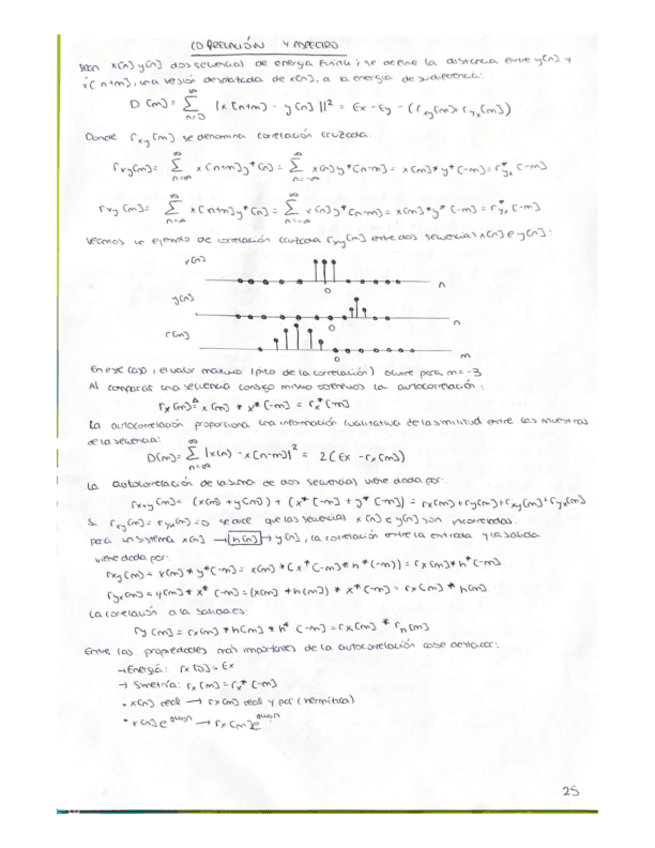 CORRELACIÓN Y ASPECTRO
Sean x[n] y[n] dos secuencias de energía finita; se define la distancia entre y[n] y
x[n+m], una versión desplazada de x[n], a la energía de su diferencia:
D[m] = ∞Σn=0 |x[n+m] - y[n]||² = Ex - Ey - (rxy[m]+ryx[m])
Donde rxy[m] se denomina correlación cruzada.
rxy[m] = ∞Σn=∞ x[n+m]y*[n] = ∞Σn=-∞ x[n]y*[n-m] = x[m]*y*[-m] = r*yx[-m]
rxy[m] = ∞Σn=-∞ x[n+m]y*[n] = ∞Σn=-∞ x[n]y*[n-m] = x[m]*y*[-m] = r*yx[-m]
Veamos un ejemplo de correlación cruzada rxy[m] entre dos secuencias x[n] e y[n]:
x[n]
0 n
y[n]
0 n
r[m]
0 m
En ese caso, el valor máximo (pico de la correlación) ocurre para m=-3
Al comparar una secuencia consigo mismo obtenemos la autocorrelación:
rx[m] ≜ x[m] * x*[-m] = rx*[-m]
La autocorrelación proporciona una información cualitativa de la similitud entre las muestras
de la secuencia:
D[m] = ∞Σn=∞ |x[n] - x[n-m]|² = 2(Ex - rx[m])
La autocorrelación de la suma de dos secuencias viene dada por:
rx+y[m] = (x[m]+y[m]) + (x*[-m] + y*[-m]) = rx[m]+ry[m]+rxy[m]+ryx[m]
Si rxy[m] = ryx[m] = 0 se dice que las secuencias x[n] e y[n] son incorreladas.
para un sistema x[n] → h[n] → y[n], la correlación entre la entrada y la salida
viene dada por:
rxy[m] = x[m]*y*[-m] = x[m]*(x*[-m]*h*[-m]) = rx[m]*h*[-m]
ryx[m] = y[m]*x*[-m] = (x[m]*h[m])*x*[-m] = rx[m]*h[m]
La correlación a la salida es:
ry[m] = rx[m]*h[m]*h*[-m] = rx[m]*rh[m]
Entre las propiedades más importantes de la autocorrelación cabe destacar:
→ Energía: rx[0] = Ex
→ Simetría: rx[m] = rx*[-m]
• x[n] real → rx[m] real y par (hermítica)
• x[n]e → rx[m]e
25